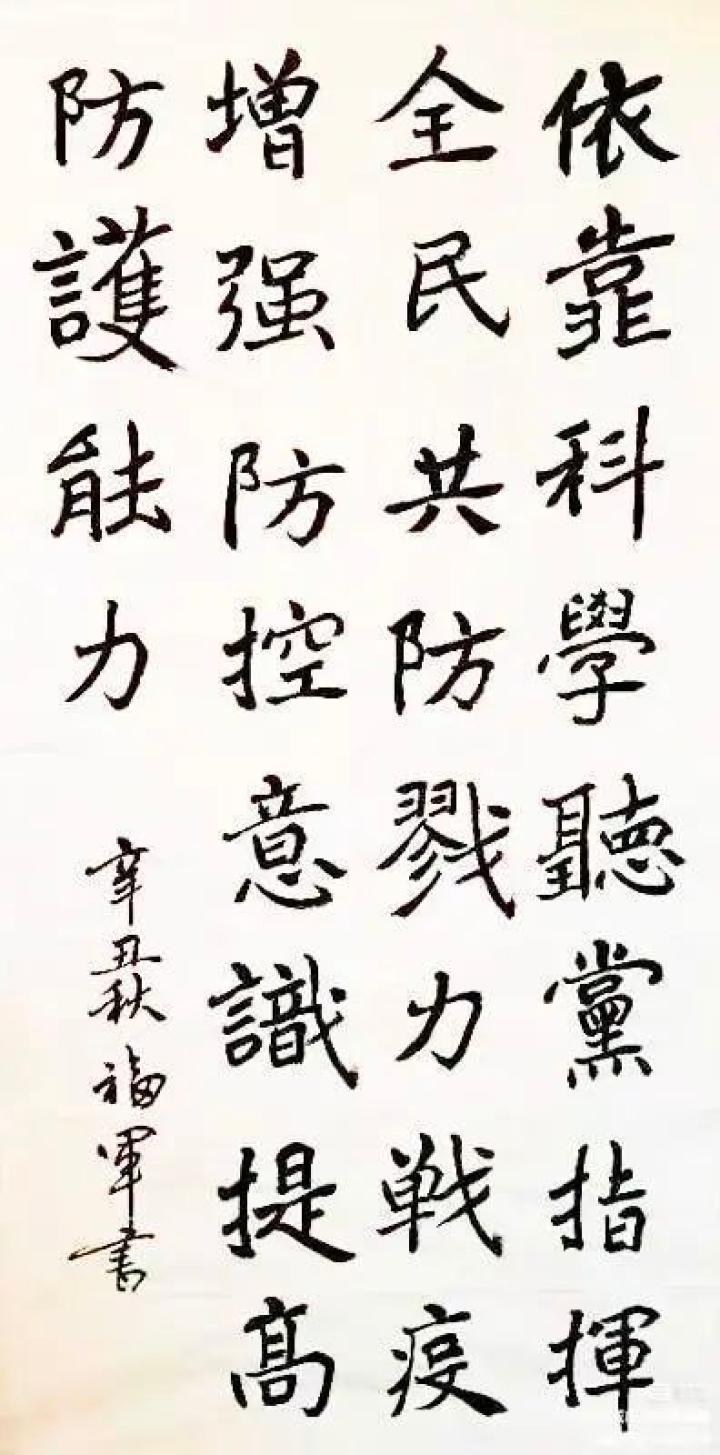 依靠科學聽黨指揮
全民共防戮力戦疫
增强防控意識提高
防護能力
辛丑秋福軍书